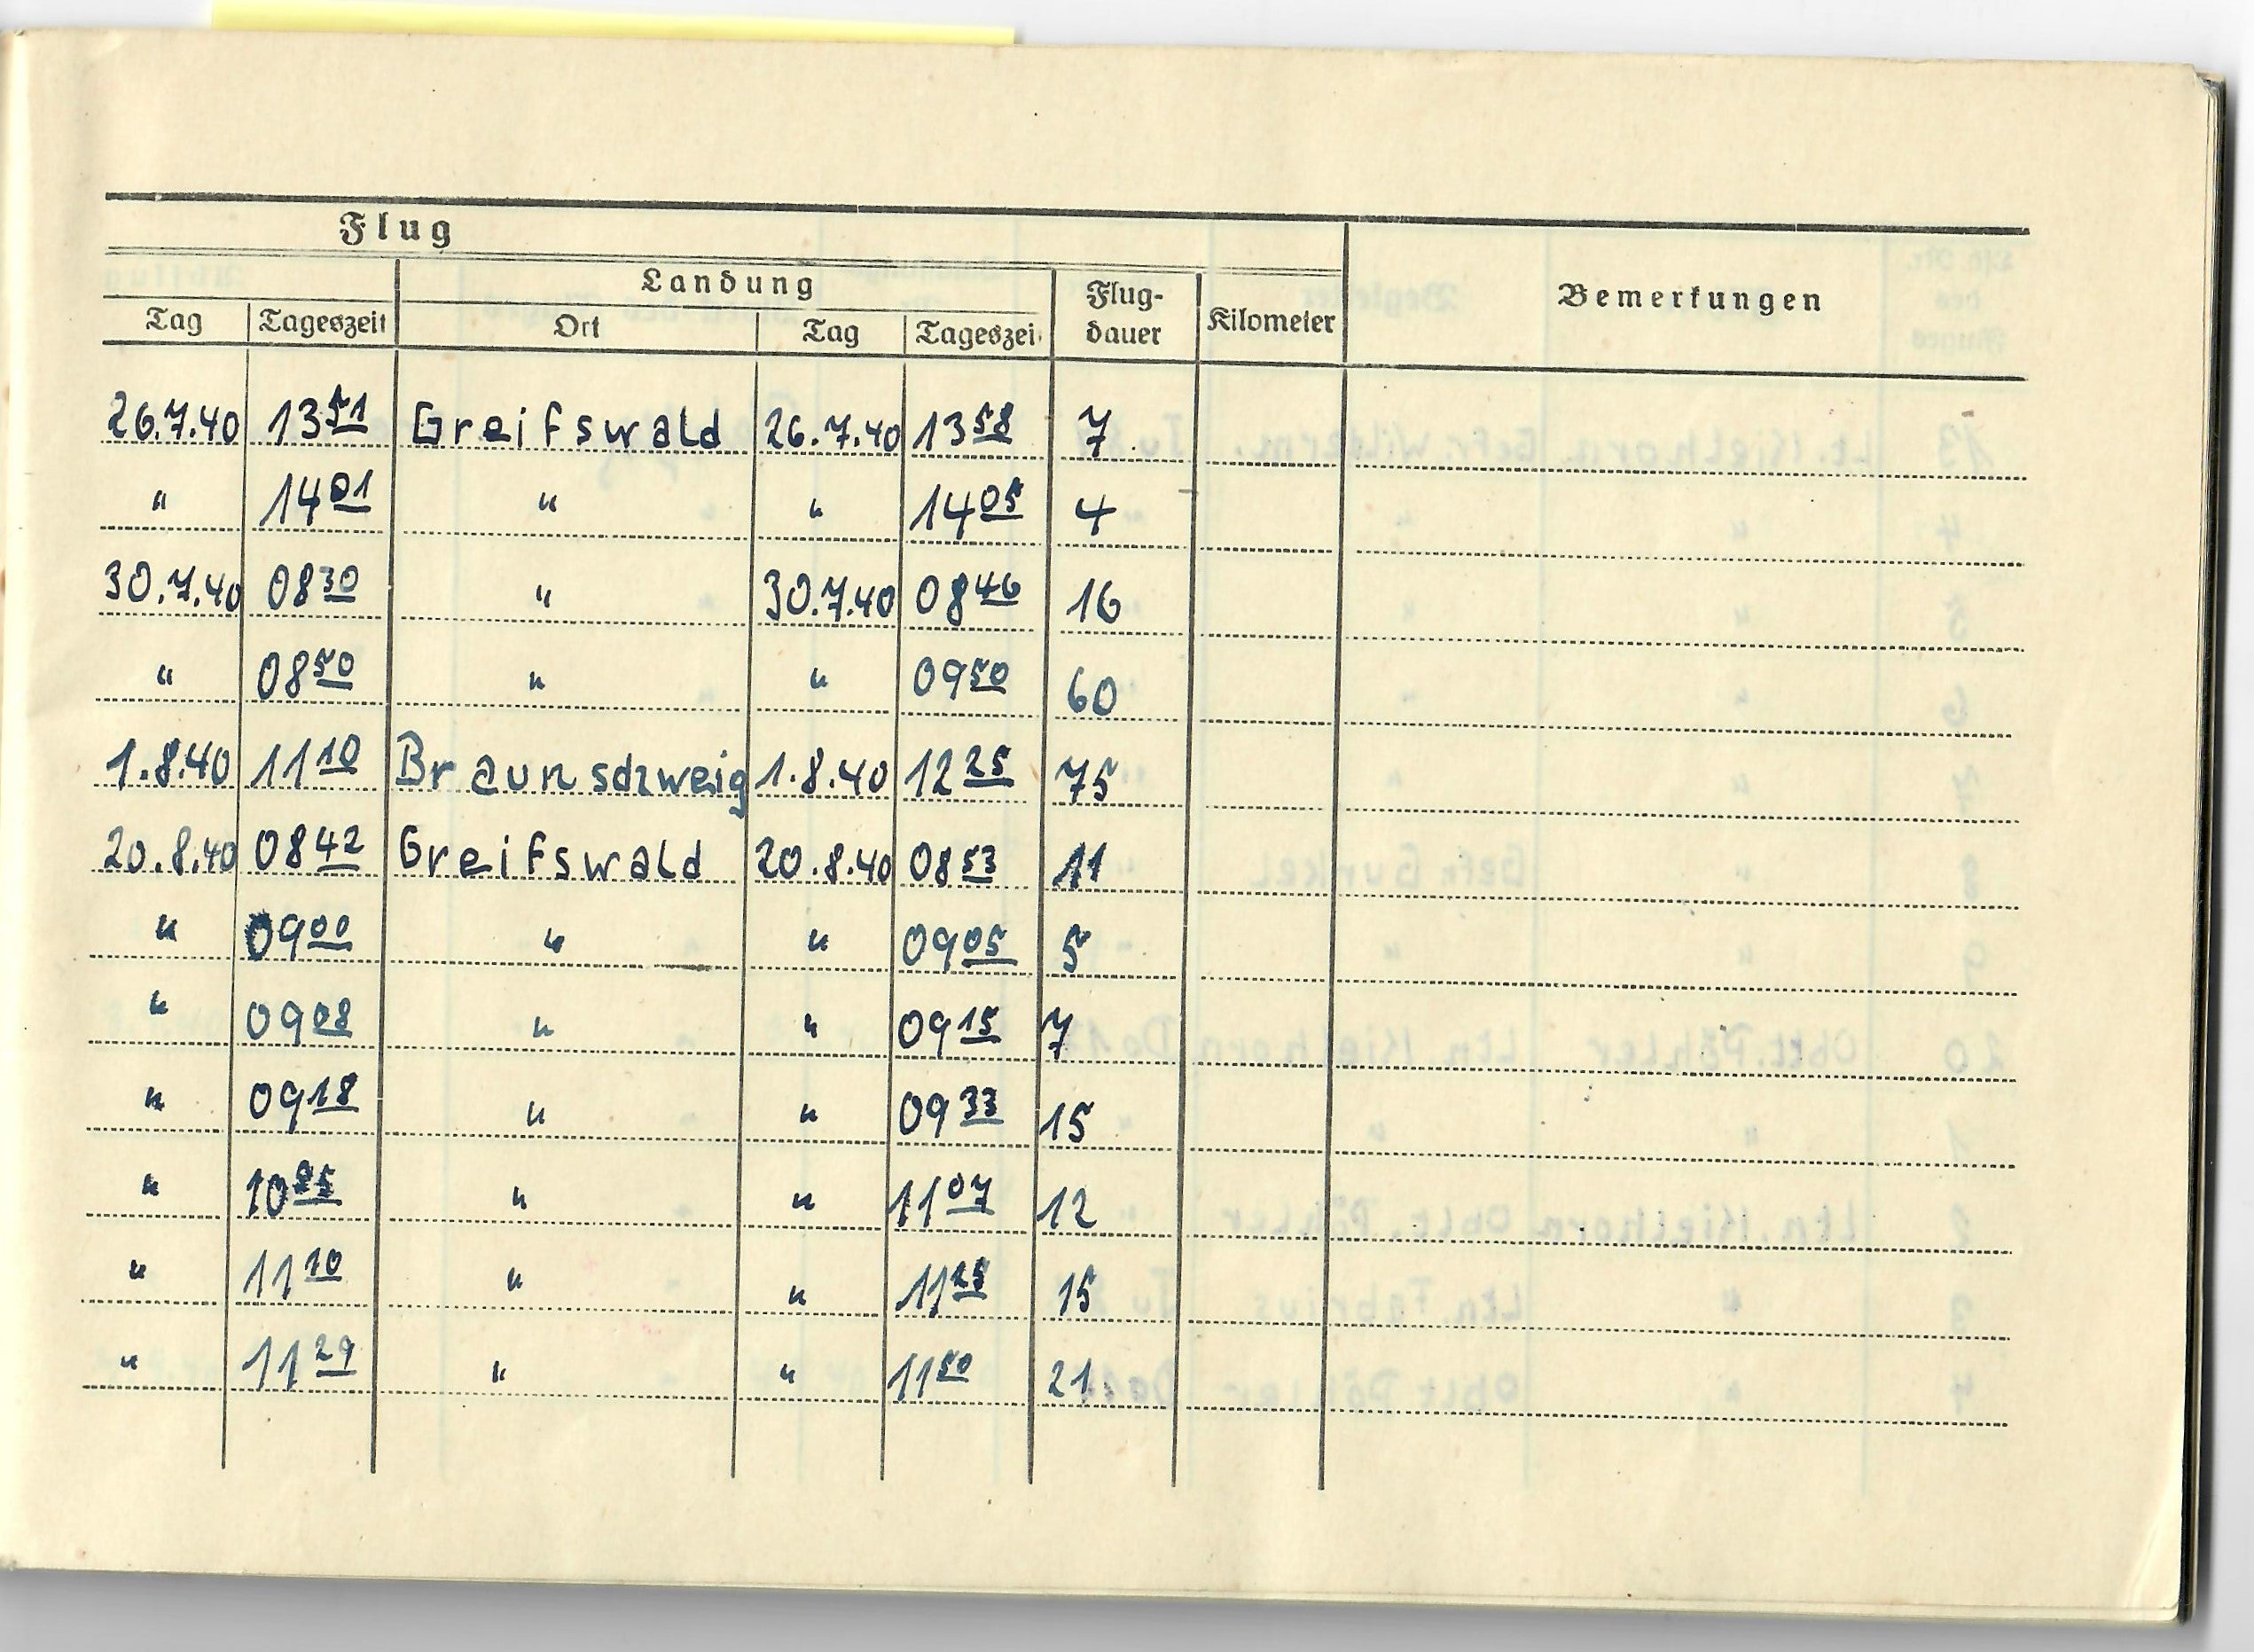 Flug
Landung
Flug-
dauer
Kilometer
Bemerkungen
Tag Tageszeit Ort Tag Tageszei
26.7.40 13 51 Greifswald 26.7.40 13 58 7
" 14 01 " " 14 05 4
30.7.40 08 30 " 30.7.40 08 46 16
" 08 50 " " 09 50 60
1.8.40 11 10 Braunschweig 1.8.40 12 25 75
20.8.40 08 42 Greifswald 20.8.40 08 53 11
" 09 00 " " 09 05 5
" 09 08 " " 09 15 7
" 09 18 " " 09 33 15
" " " 11 07 12
" 11 10 " " 11 25 15
" 11 29 " " 11 50 21